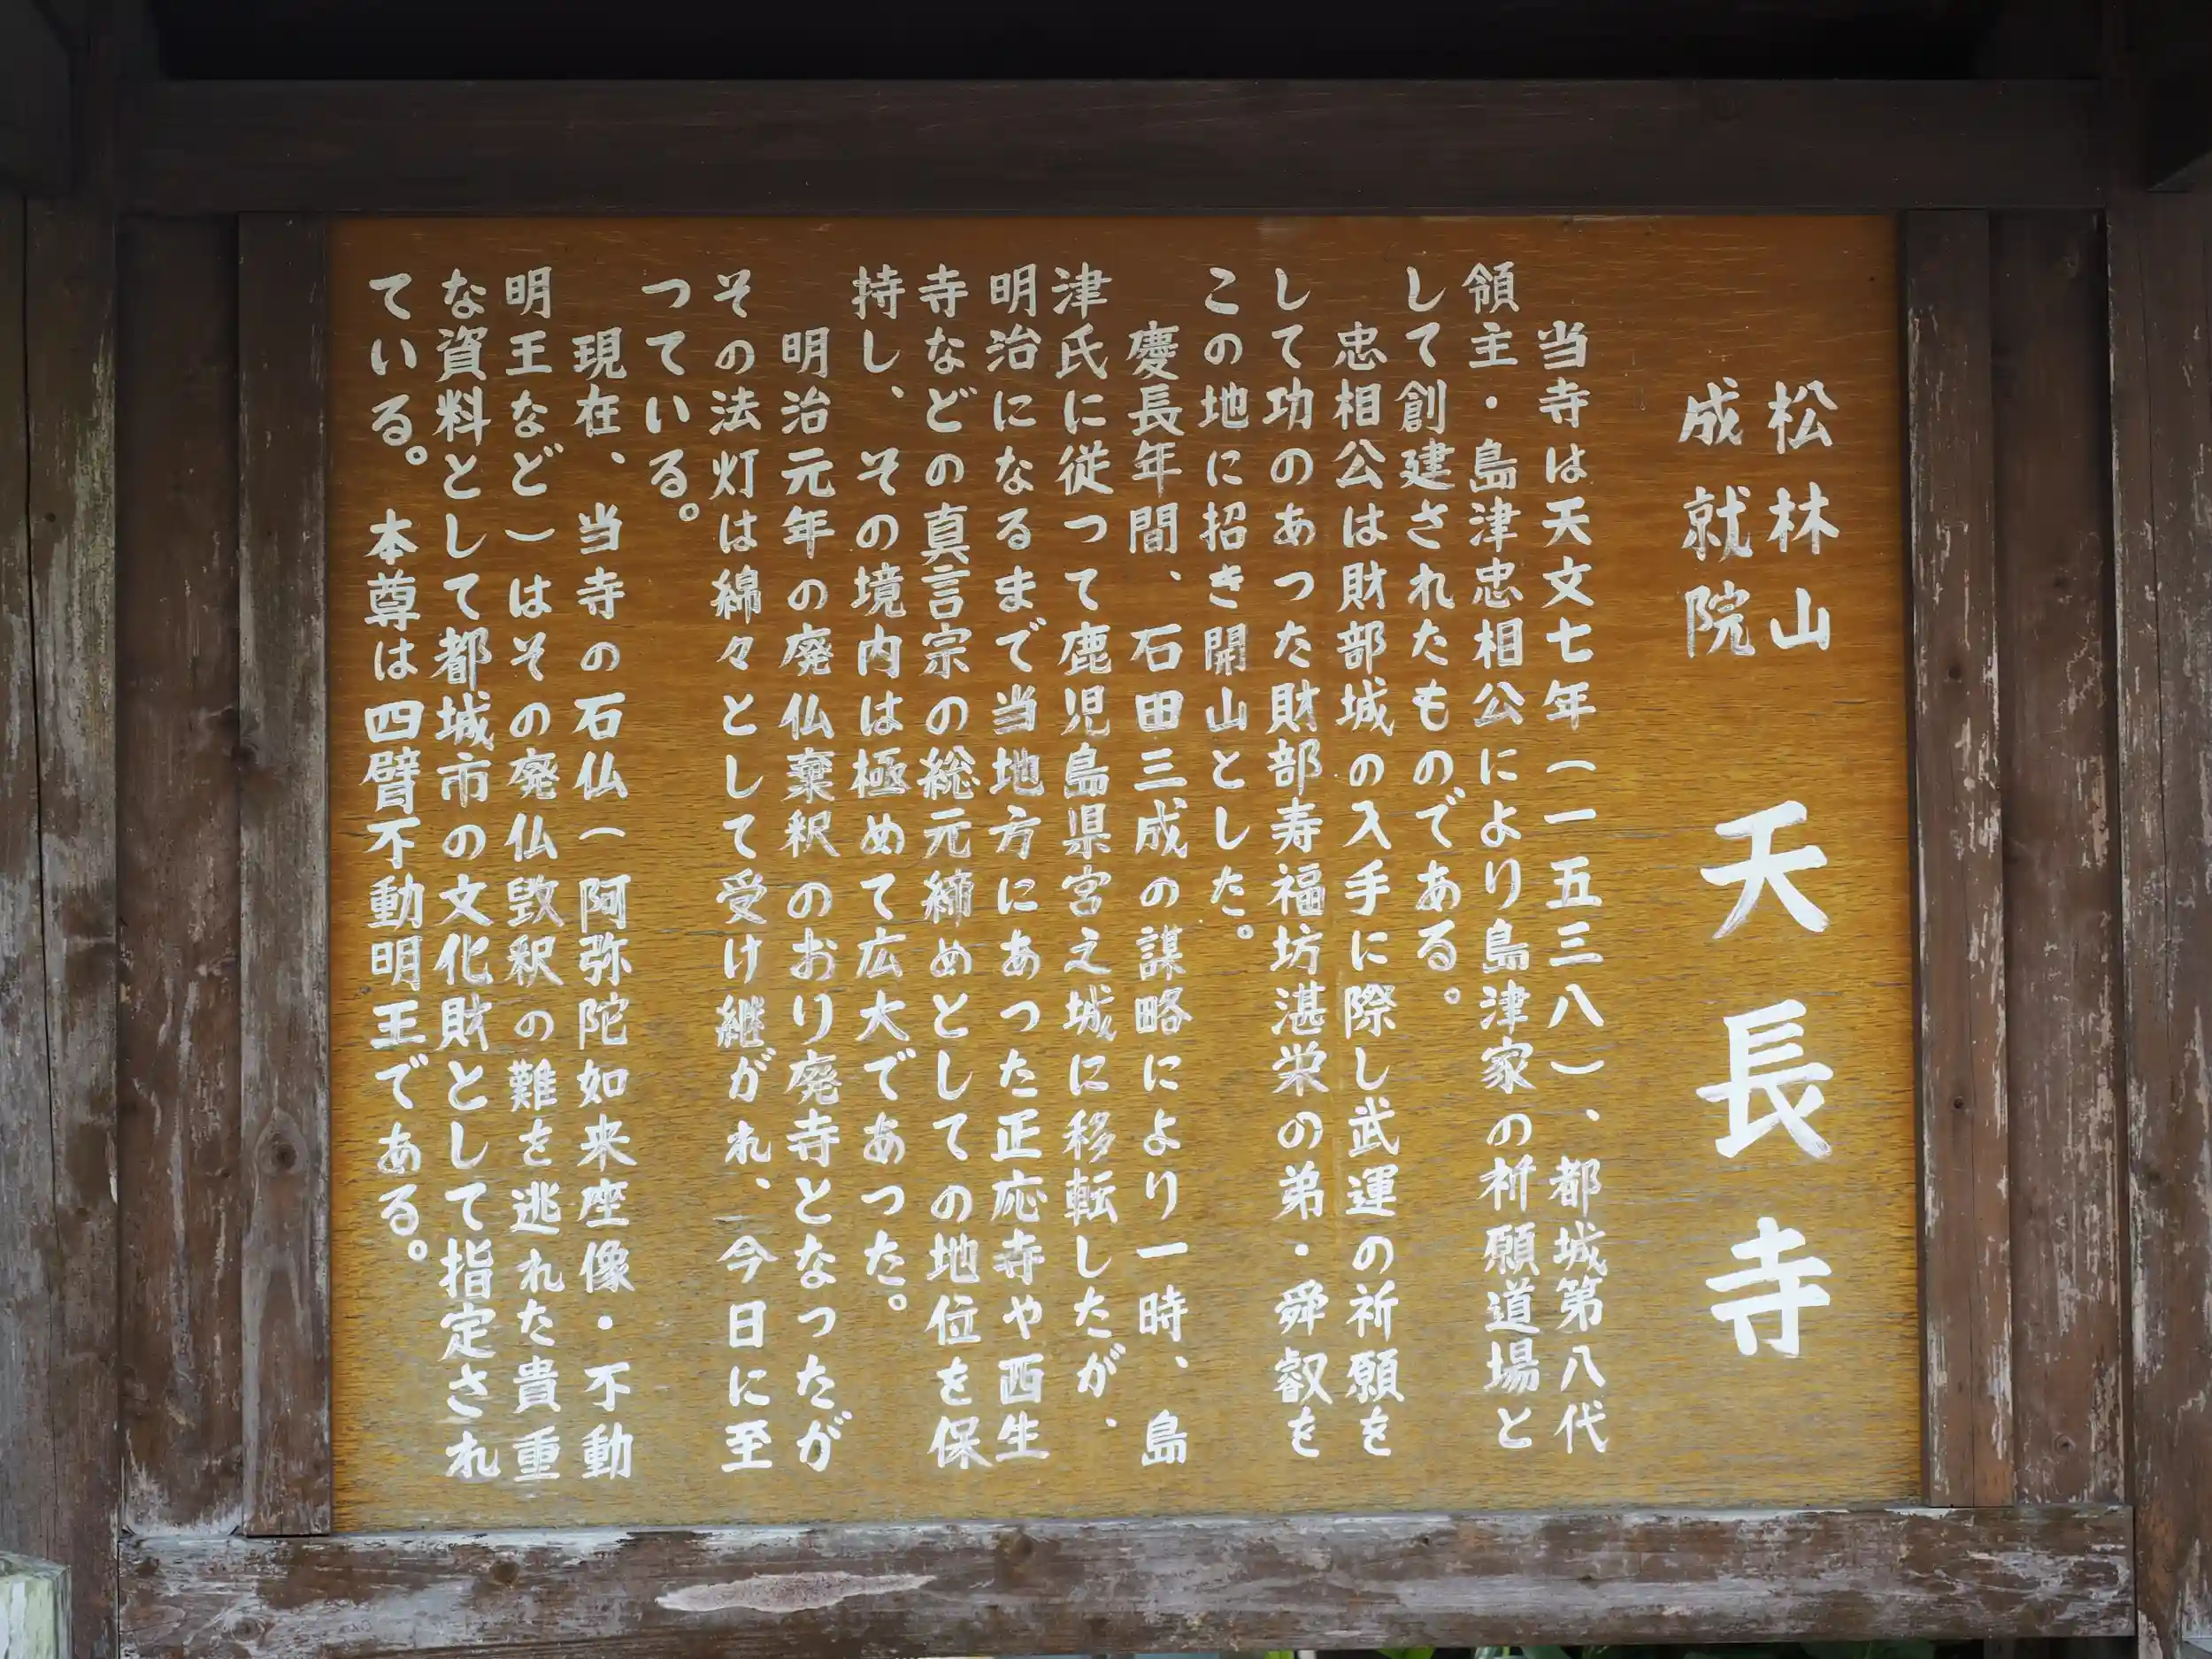 松林山
成就院
天長寺
当寺は天文七年(一五三八)、都城第八代
領主・島津忠相公により島津家の祈願道場と
して創建されたものである。
忠相公は財部城の入手に際し武運の祈願を
して功のあった財部寿福坊湛栄の弟・舜叡を
この地に招き開山とした。
慶長年間、石田三成の謀略により一時、島
津氏に従って鹿児島県宮之城に移転したが、
明治になるまで当地方にあった正応寺や西生
寺などの真言宗の総元締めとしての地位を保
持し、その境内は極めて広大であった。
明治元年の廃仏棄釈のおり廃寺となったが
その法灯は綿々として受け継がれ、今日に至
っている。
現在、当寺の石仏(阿弥陀如来座像・不動
明王など)はその廃仏毀釈の難を逃れた貴重
な資料として都城市の文化財として指定され
ている。本尊は四臂不動明王である。